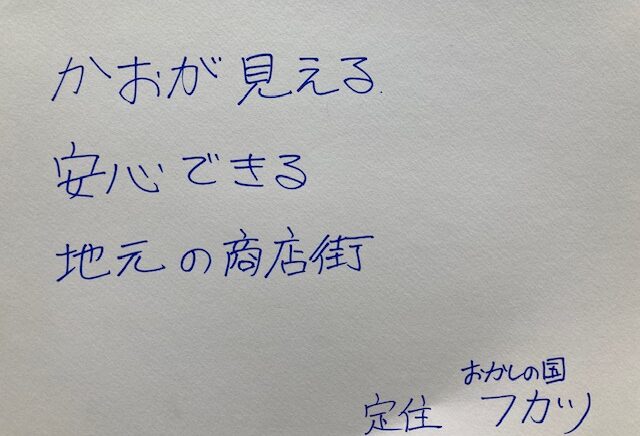 かおが見える
安心できる
地元の商店街
おかしの国
定住 フカツ